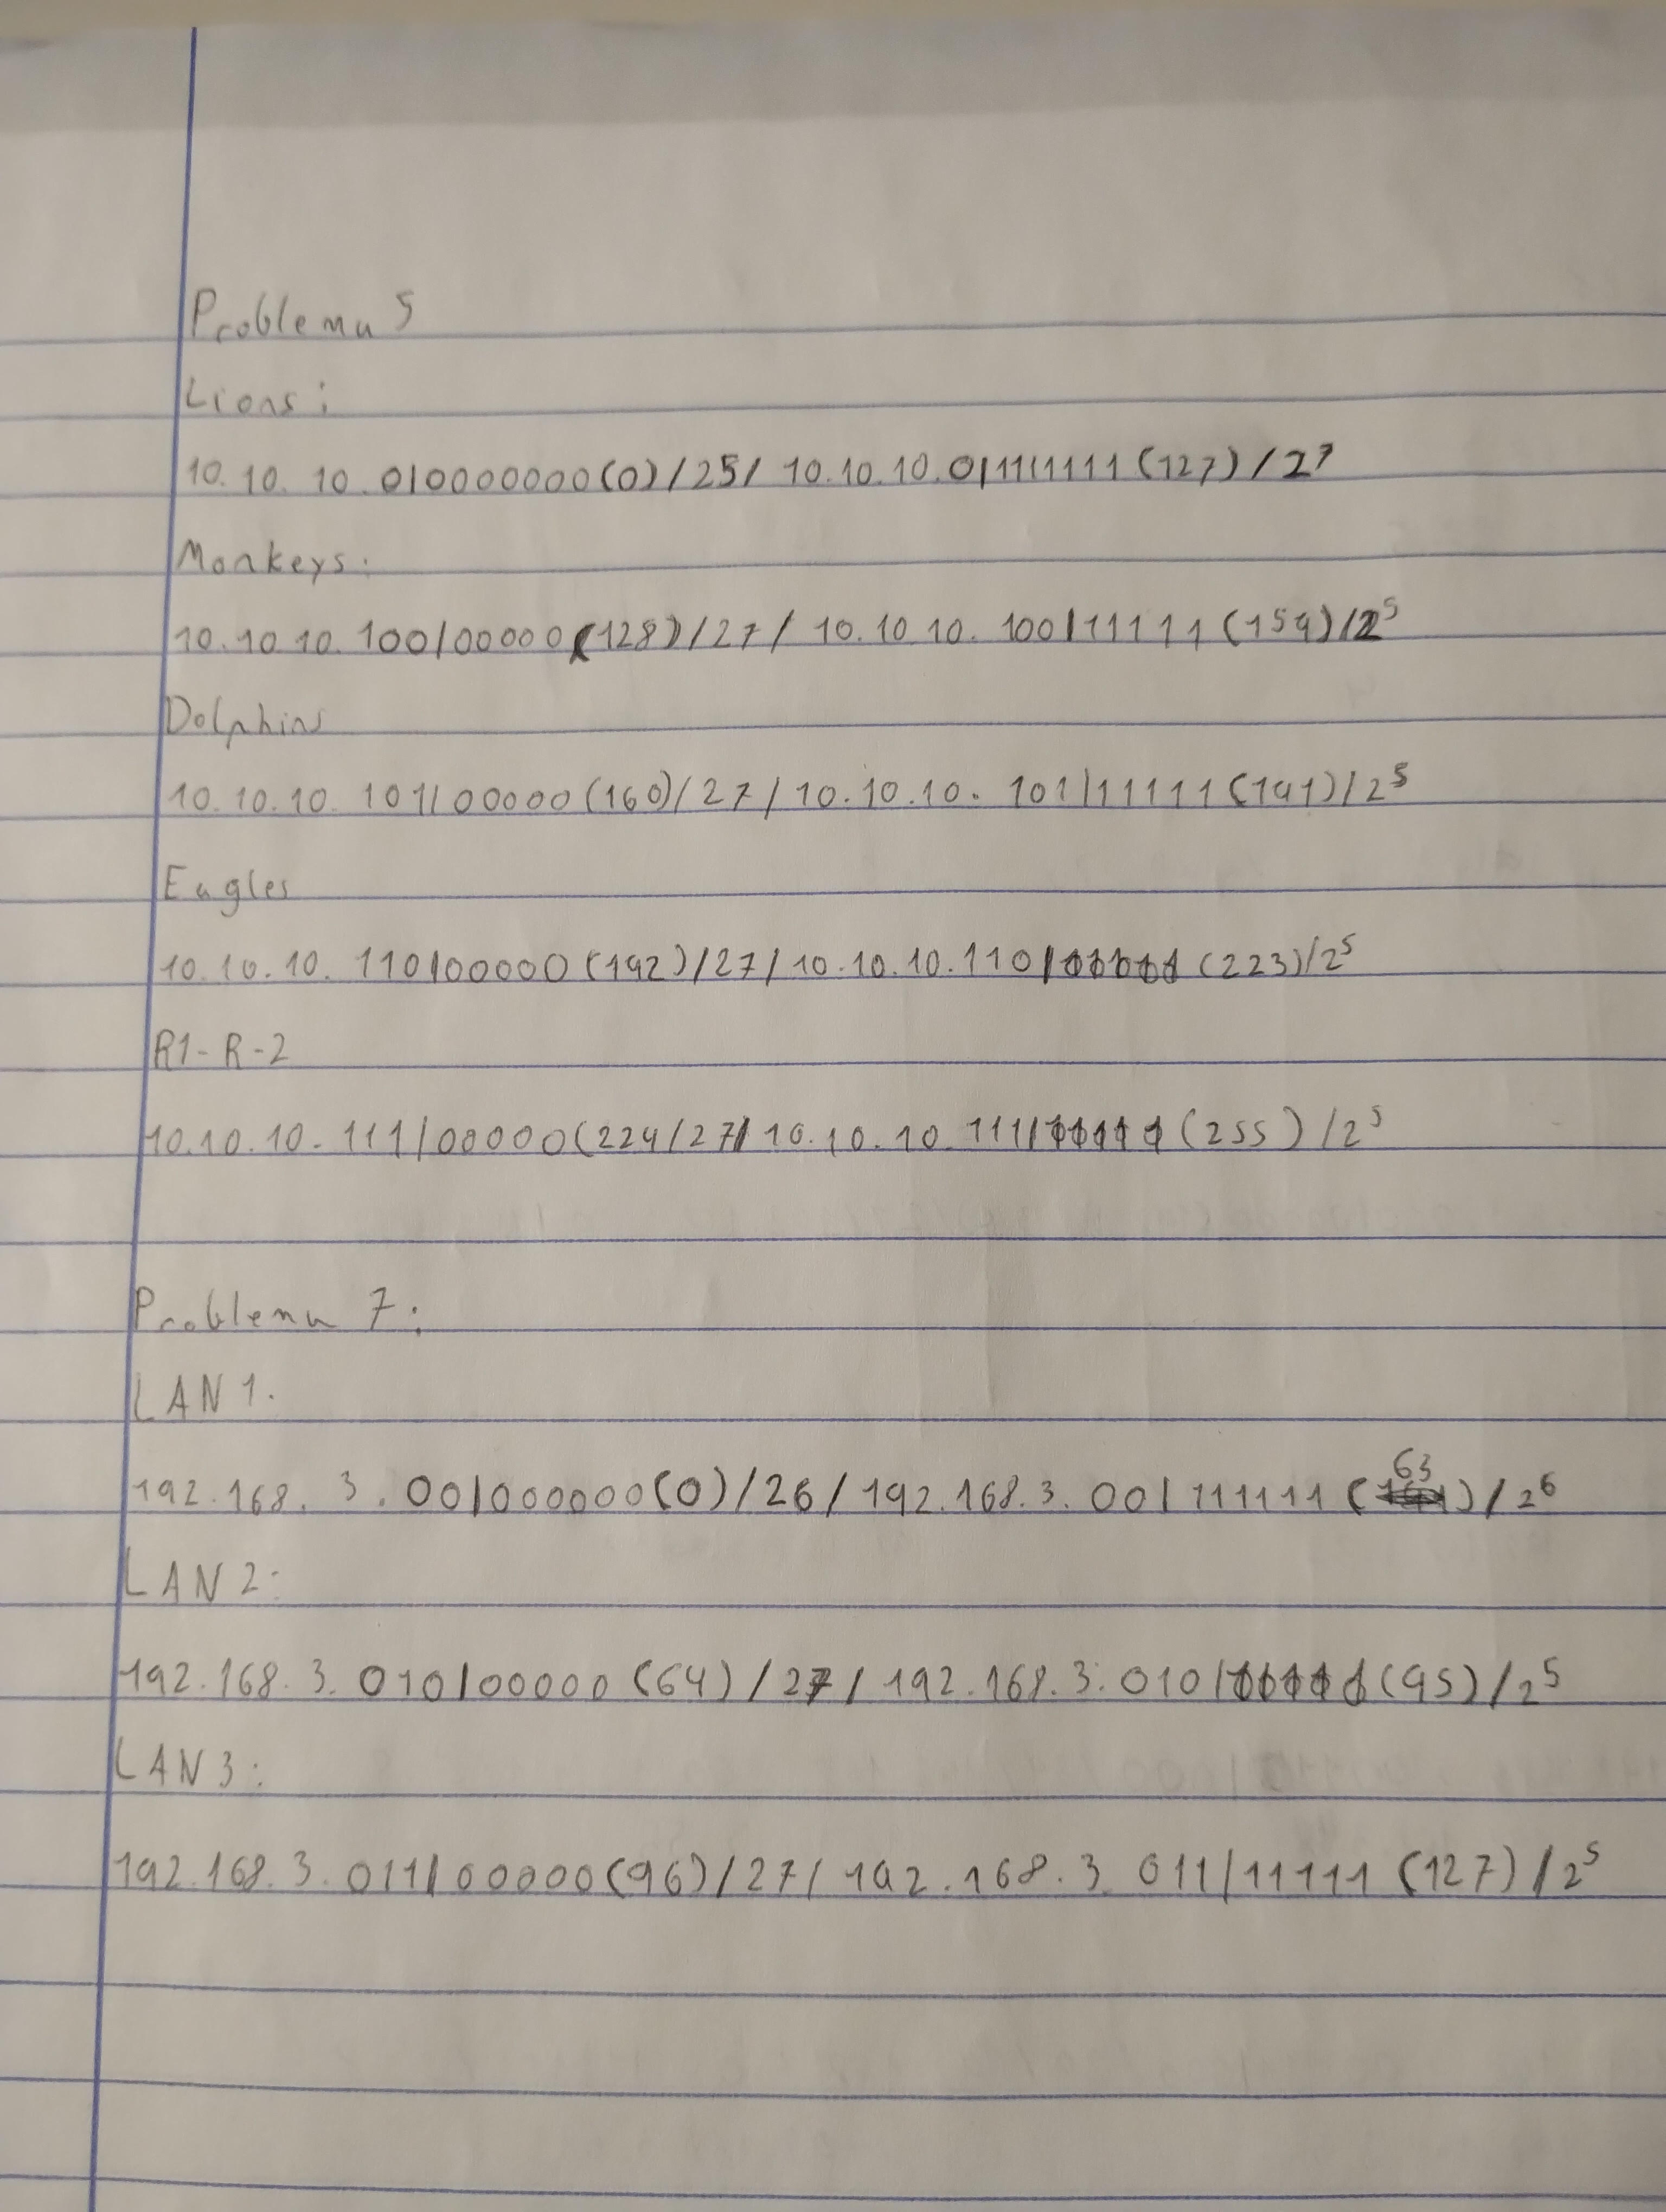 Problema 5
Lions:
10.10.10.0|0000000(0)/25/ 10.10.10.0|1111111(127)/2⁷
Monkeys:
10.10.10.100|00000(128)/27/ 10.10.10.100|11111(159)/2⁵
Dolphins
10.10.10.101|00000(160)/27/10.10.10.101|11111(191)/2⁵
Eagles
10.10.10.110|00000(192)/27/10.10.10.110|11111(223)/2⁵
R1-R-2
10.10.10.111|00000(224/27/10.10.10.111|11111(255)/2⁵
Problema 7:
LAN 1.
192.168.3.00|000000(0)/26/192.168.3.00|111111(63)/2⁶
LAN 2:
192.168.3.010|00000(64)/27/192.168.3.010|11111(95)/2⁵
LAN 3:
192.168.3.011|00000(96)/27/192.168.3.011|11111(127)/2⁵